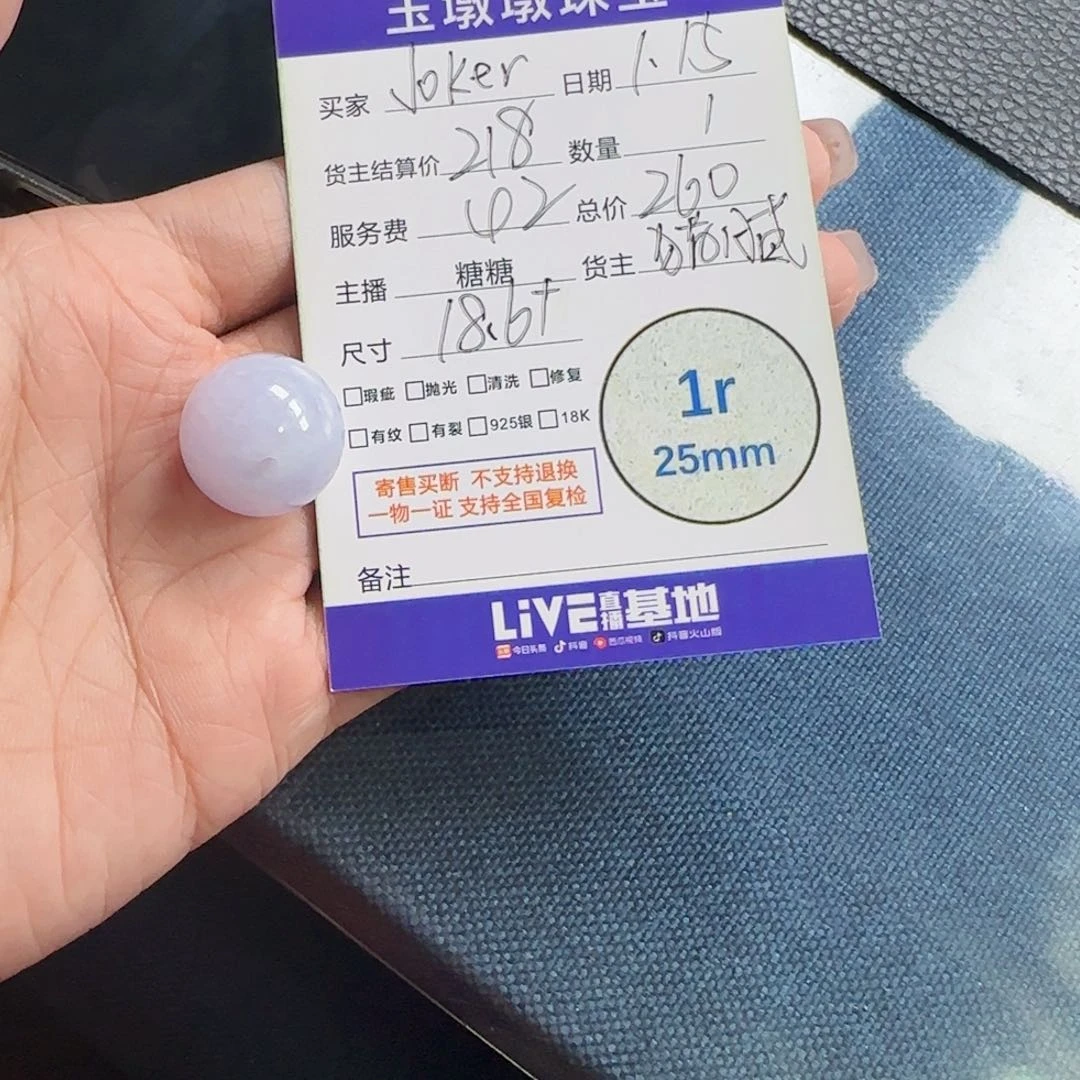 玉墩墩珠宝
买家 Joker 日期 1.15
货主结算价 218 数量 1
服务费 42 总价 260
主播 糖糖 货主
尺寸 18.6+
□瑕疵 □抛光 □清洗 □修复
□有纹 □有裂 □925银 □18K
1r
25mm
寄售买断 不支持退换
一物一证 支持全国复检
备注
LiVE直播基地
今日头条 抖音 西瓜视频 抖音火山版